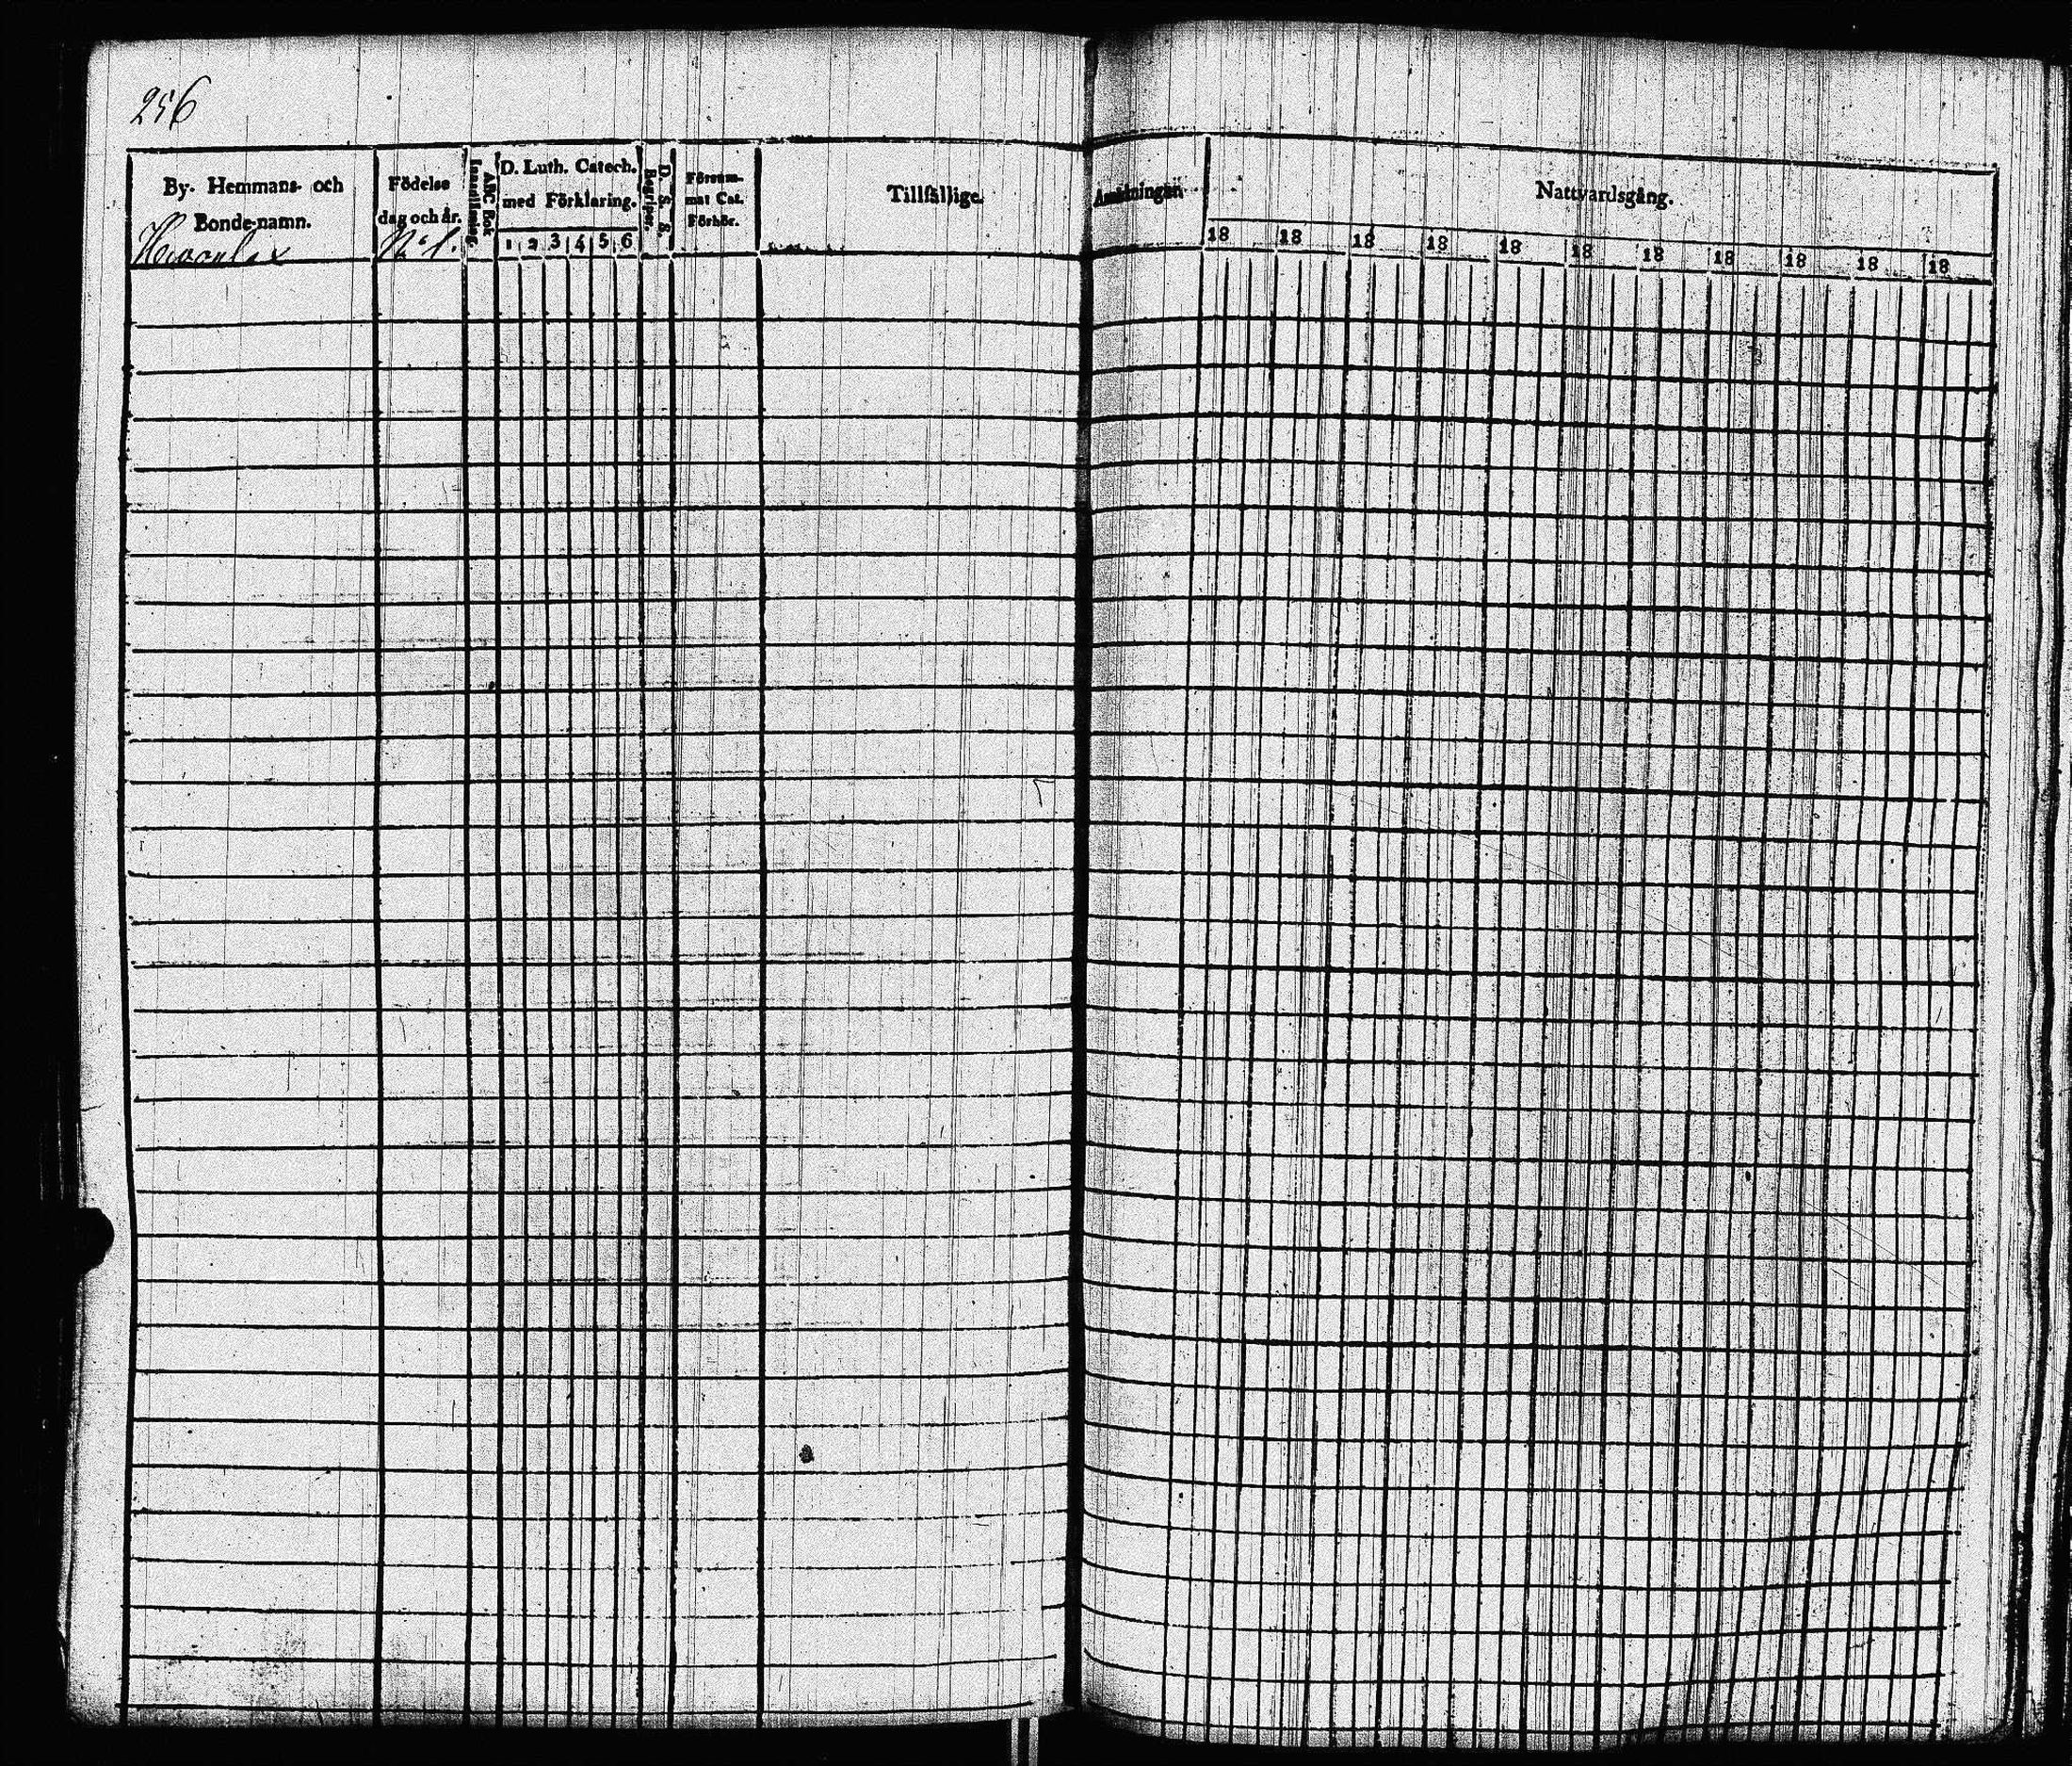 256
By- Hemmans- och
Bonde-namn.
Födelse
dag och år.
No 1.
ABC Bok
Innanläsning.
D. Luth. Catech.
med Förklaring.
1 2 3 4 5 6
D. S. S.
Begriper.
Försum-
mat Cat.
Förhör.
Tillfällige
Anmärkningar.
Nattvardsgång.
18 18 18 18 18 18 18 18 18 18 18